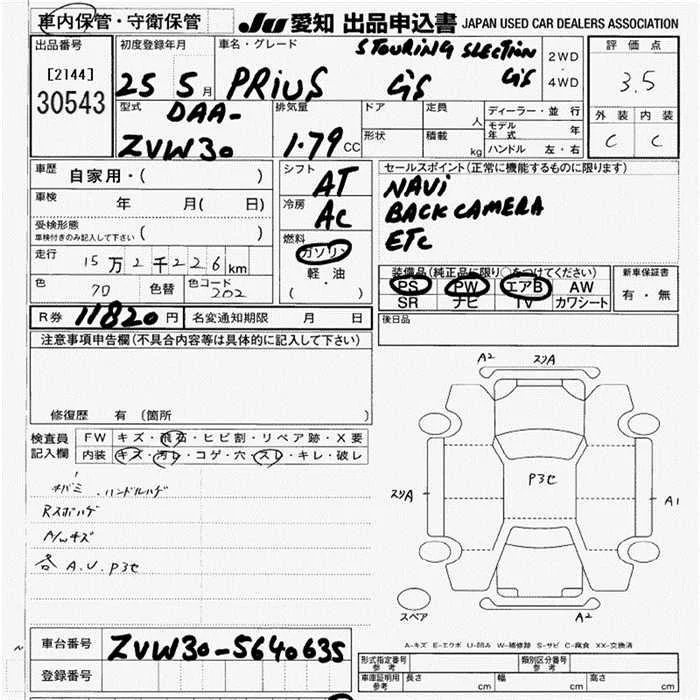 車内保管・守衛保管
JU 愛知 出品申込書 JAPAN USED CAR DEALERS ASSOCIATION
出品番号
[2144]
30543
初度登録年月
25 5 月
車名・グレード
PRiUS
S TOURiNG SLECTiON
G's G's
2WD
・
4WD
評価点
3.5
外装 内装
C C
型式
DAA-
ZVW30
排気量
1.79 CC
ドア
定員
人
形状
積載
kg
ディーラー・並行
モデル年式 年
ハンドル 左・右
車歴
自家用・( )
車検
年 月( 日)
受検形態
車検付きのみ記入して下さい ( )
走行
15万2千226km
色
70
色替
色コード
202
シフト
AT
冷房
AC
燃料
ガソリン
軽・油
( )
セールスポイント(正常に機能するものに限ります)
NAVi
BACK CAMERA
ETC
装備品(純正品に限り○をつけてください)
PS PW エアB AW
SR ナビ TV カワシート
新車保証書
有・無
R券 11820 円
名変通知期限 月 日
後日品
注意事項申告欄(不具合内容等は具体的に記入して下さい)
修復歴 有 (箇所 )
検査員
記入欄
FW キズ・飛石・ヒビ割・リペア跡・X要
内装 キズ・汚レ・コゲ・穴・スレ・キレ・破レ
ハンドルハゲ
A/Wキズ
各 A.U.P3セ
A2
スリA
P3セ
スリA
A1
スペア
A2
A-キズ E-エクボ U-凹み W-補修跡 S-サビ C-腐食 XX-交換済
車台番号 ZVW30-5640635
登録番号
形式指定番号
参考
類別区分番号
参考
車庫証明用
参考
長さ cm
幅 cm
高さ cm